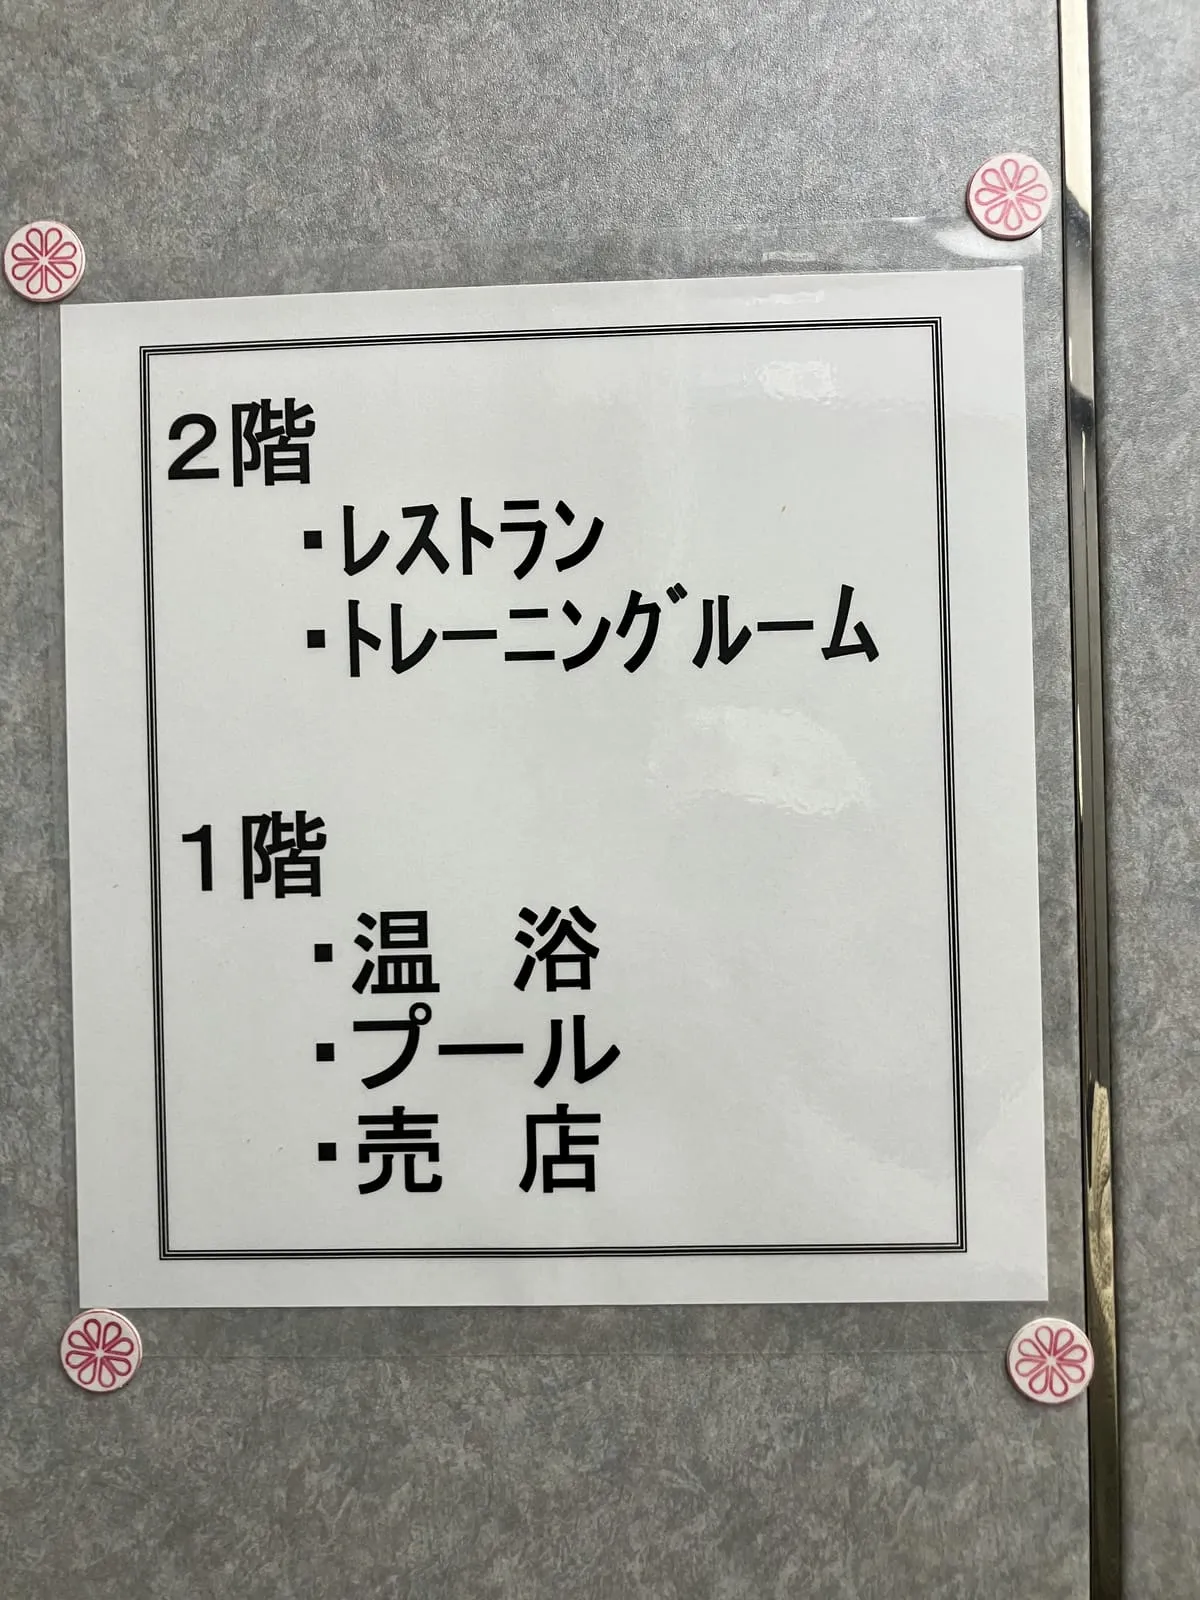 ２階
・ﾚｽﾄﾗﾝ
・ﾄﾚｰﾆﾝｸﾞﾙｰﾑ
１階
・温　浴
・プール
・売　店